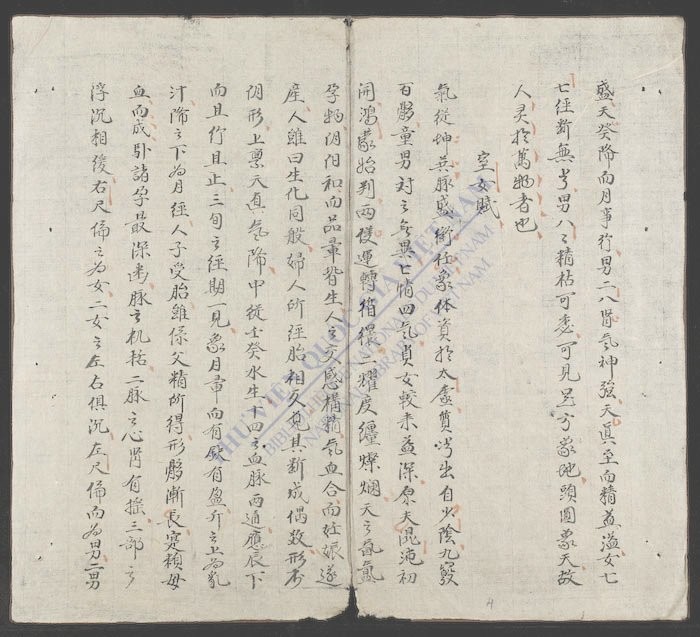 盛天癸降而月事行男二八腎氣神強天真至而精益溢女七
七經斷無𠃔男八々精枯可委可見足方象地頭圓象天故
人灵於萬物者也
室女賦
氣從坤英脉盛衝任象体資於太虛質 出自少陰九竅
百骸童男对之無異七情四气貞女較来益深原夫混沌初
開鴻蒙始判兩儀運轉循環二耀度纏燦爛天之氤氳
孕物阴阳和而品彙皆生人之交感構精氣血合而妊娠遂
産人雖曰生化同般婦人所經胎相久 其斷成偶数形
阴形上禀天真氣降中從壬癸水生下四之血脉兩通應辰下
而且行且止三旬之經期一見象月 而有缺有盈升之上為乳
汁降之下為月經人子受胎雖係父精所得形骸漸長寔頼母
血而成卧諸孕最深 脉之机括二脉之心腎有 三部之
浮沉相缓右尺偏之為女二女之左右俱沉左尺偏而為男二男
THƯ VIỆN QUỐC GIA VIỆT NAM
BIBLIOTHÈQUE NATIONALE DU VIETNAM
NATIONAL LIBRARY OF VIETNAM